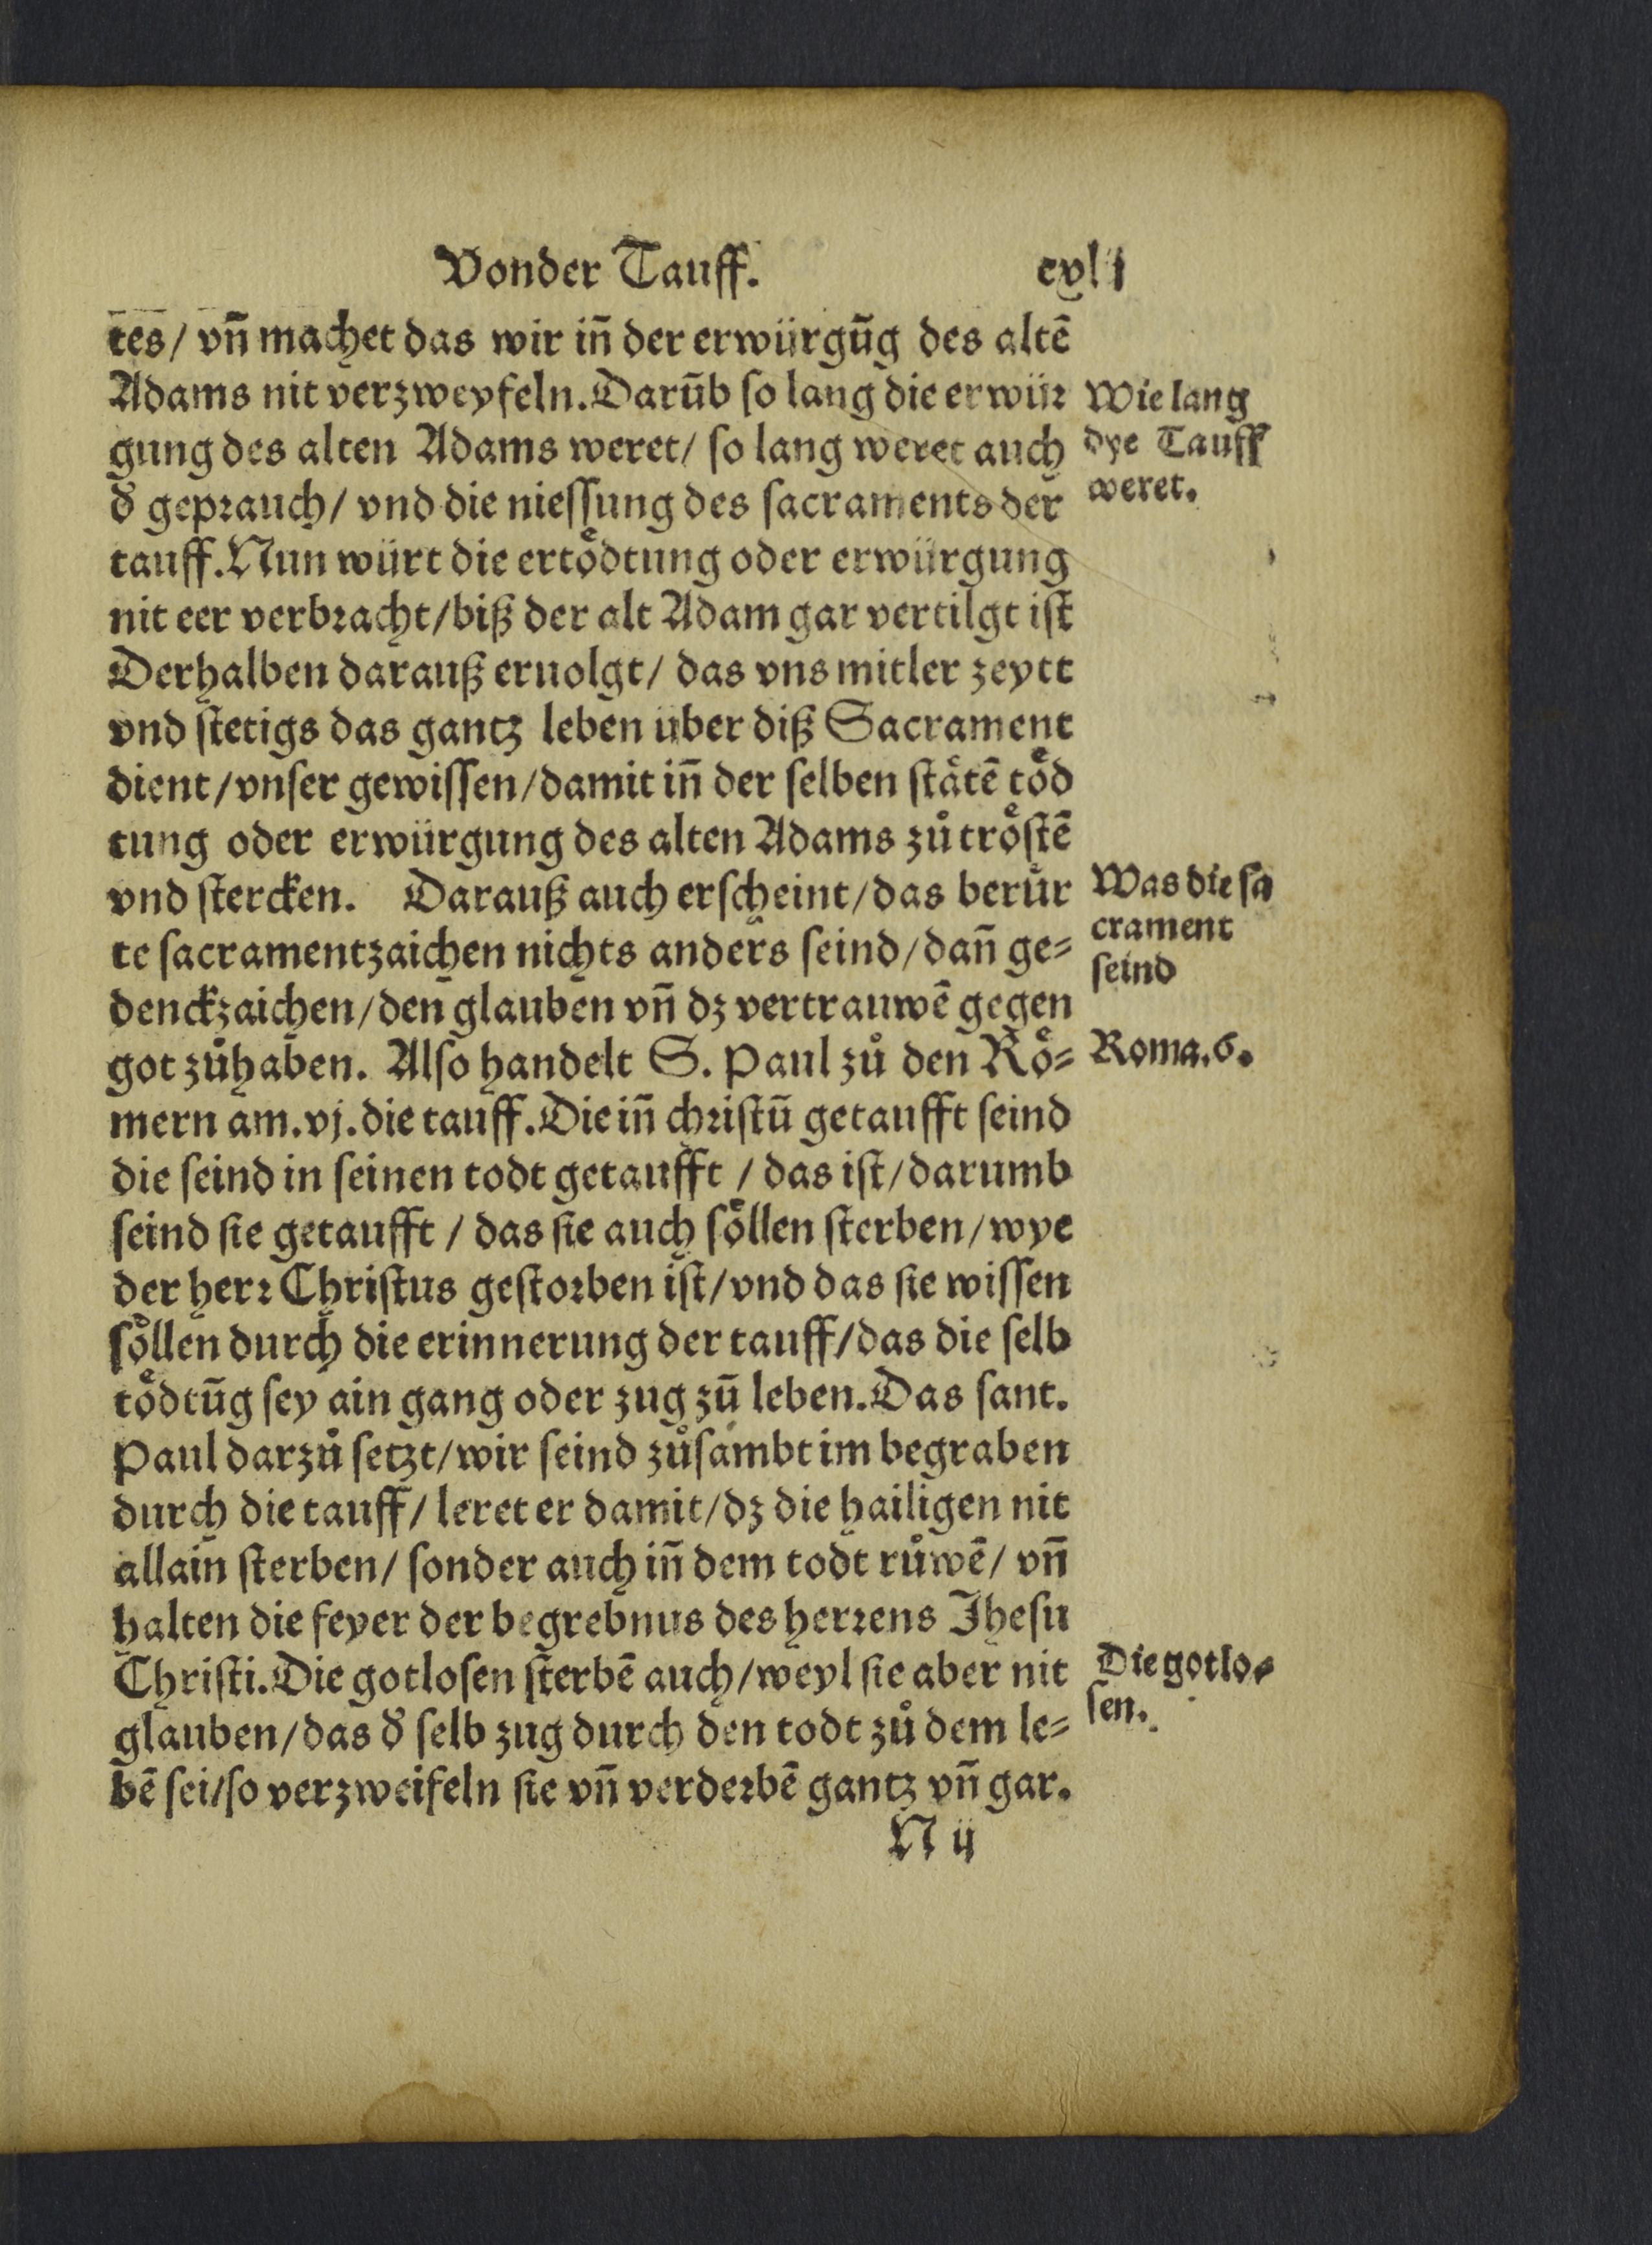 Vonder Tauff.
tes/ vn̄ machet das wir in̄ der erwürgūg des altē
Adams nit verzweyfeln. Darūb ſo lang die erwür
Wie lang
gung des alten Adams weret/ ſo lang weret auch
dye Tauff
ď geprauch/ vnd die nieſſung des ſacraments der
weret.
tauff. Nun würt die ertoͤdtung oder erwürgung
nit eer verbracht/ biß der alt Adam gar vertilgt iſt
Derhalben darauß eruolgt/ das vns mitler zeytt
vnd ſtetigs das gantz leben über diß Sacrament
dient/ vnſer gewiſſen/ damit in̄ der ſelben ſtaͤtē toͤd
tung oder erwürgung des alten Adams zuͦ troͤſtē
vnd ſtercken. Darauß auch erſcheint/ das beruͤr
Was die ſa
te ſacramentzaichen nichts anders ſeind/ dan̄ ge⸗
crament
ſeind
denckzaichen/ den glauben vn̄ dz vertrauwē gegen
got zuͦhaben. Alſo handelt S. Paul zuͦ den Roͤ⸗
Roma. 6.
mern am. vj. die tauff. Die in̄ chriſtū getaufft ſeind
die ſeind in ſeinen todt getaufft / das iſt/ darumb
ſeind ſie getaufft / das ſie auch ſoͤllen ſterben/ wye
der herr Chriſtus geſtorben iſt/ vnd das ſie wiſſen
ſoͤllen durch die erinnerung der tauff/ das die ſelb
toͤdtūg ſey ain gang oder zug zū leben. Das ſant.
Paul darzuͦ ſetzt/ wir ſeind zuͦſambt im begraben
durch die tauff/ leret er damit/ dz die hailigen nit
allain ſterben/ ſonder auch in̄ dem todt ruͦwē/ vn̄
halten die feyer der begrebnus des herrens Jheſu
Chriſti. Die gotloſen ſterbē auch/ weyl ſie aber nit
Die gotlo⸗
glauben/ das ď ſelb zug durch den todt zuͦ dem le⸗
ſen.
bē ſei/ ſo verzweifeln ſie vn̄ verderbē gantz vn̄ gar.
N ij